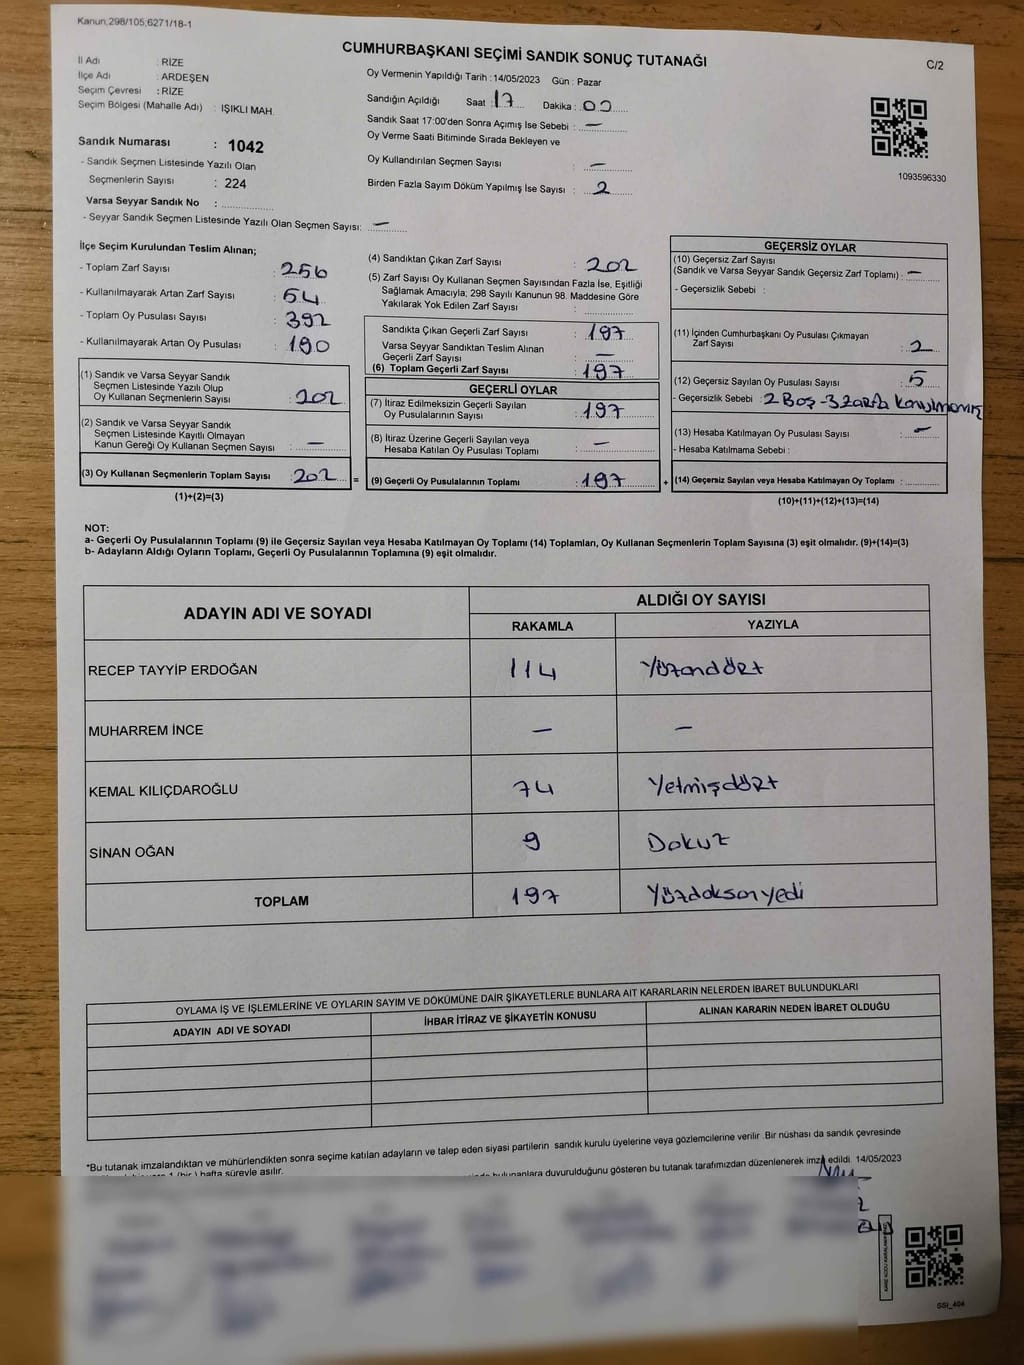 Kanun,298/105,6271/18-1
CUMHURBAŞKANI SEÇİMİ SANDIK SONUÇ TUTANAĞI
C/2
İl Adı : RİZE
İlçe Adı : ARDEŞEN
Seçim Çevresi : RİZE
Seçim Bölgesi (Mahalle Adı) : IŞIKLI MAH.
Sandık Numarası : 1042
- Sandık Seçmen Listesinde Yazılı Olan
Seçmenlerin Sayısı : 224
Varsa Seyyar Sandık No :
- Seyyar Sandık Seçmen Listesinde Yazılı Olan Seçmen Sayısı: —
Oy Vermenin Yapıldığı Tarih : 14/05/2023 Gün : Pazar
Sandığın Açıldığı Saat : 17 Dakika : 00
Sandık Saat 17:00'den Sonra Açımış İse Sebebi : —
Oy Verme Saati Bitiminde Sırada Bekleyen ve
Oy Kullandırılan Seçmen Sayısı : —
Birden Fazla Sayım Döküm Yapılmış İse Sayısı : 2
1093596330
İlçe Seçim Kurulundan Teslim Alınan;
- Toplam Zarf Sayısı : 256
- Kullanılmayarak Artan Zarf Sayısı : 54
- Toplam Oy Pusulası Sayısı : 392
- Kullanılmayarak Artan Oy Pusulası : 190
(1) Sandık ve Varsa Seyyar Sandık
Seçmen Listesinde Yazılı Olup
Oy Kullanan Seçmenlerin Sayısı : 202
(2) Sandık ve Varsa Seyyar Sandık
Seçmen Listesinde Kayıtlı Olmayan
Kanun Gereği Oy Kullanan Seçmen Sayısı : —
(3) Oy Kullanan Seçmenlerin Toplam Sayısı : 202 =
(1)+(2)=(3)
(4) Sandıktan Çıkan Zarf Sayısı : 202
(5) Zarf Sayısı Oy Kullanan Seçmen Sayısından Fazla İse, Eşitliği
Sağlamak Amacıyla, 298 Sayılı Kanunun 98. Maddesine Göre
Yakılarak Yok Edilen Zarf Sayısı :
Sandıkta Çıkan Geçerli Zarf Sayısı : 197
Varsa Seyyar Sandıktan Teslim Alınan
Geçerli Zarf Sayısı : —
(6) Toplam Geçerli Zarf Sayısı : 197
GEÇERLİ OYLAR
(7) İtiraz Edilmeksizin Geçerli Sayılan
Oy Pusulalarının Sayısı : 197
(8) İtiraz Üzerine Geçerli Sayılan veya
Hesaba Katılan Oy Pusulası Toplamı : —
(9) Geçerli Oy Pusulalarının Toplamı : 197 +
GEÇERSİZ OYLAR
(10) Geçersiz Zarf Sayısı
(Sandık ve Varsa Seyyar Sandık Geçersiz Zarf Toplamı) : —
- Geçersizlik Sebebi :
(11) İçinden Cumhurbaşkanı Oy Pusulası Çıkmayan
Zarf Sayısı : 2
(12) Geçersiz Sayılan Oy Pusulası Sayısı : 5
- Geçersizlik Sebebi : 2 Boş - 3 zarfa konulmamış
(13) Hesaba Katılmayan Oy Pusulası Sayısı : —
- Hesaba Katılmama Sebebi :
(14) Geçersiz Sayılan veya Hesaba Katılmayan Oy Toplamı :
(10)+(11)+(12)+(13)=(14)
NOT:
a- Geçerli Oy Pusulalarının Toplamı (9) ile Geçersiz Sayılan veya Hesaba Katılmayan Oy Toplamı (14) Toplamları, Oy Kullanan Seçmenlerin Toplam Sayısına (3) eşit olmalıdır. (9)+(14)=(3)
b- Adayların Aldığı Oyların Toplamı, Geçerli Oy Pusulalarının Toplamına (9) eşit olmalıdır.
ADAYIN ADI VE SOYADI ALDIĞI OY SAYISI
RAKAMLA YAZIYLA
RECEP TAYYİP ERDOĞAN 114 Yüzondört
MUHARREM İNCE — —
KEMAL KILIÇDAROĞLU 74 Yetmişdört
SİNAN OĞAN 9 Dokuz
TOPLAM 197 Yüzdoksanyedi
OYLAMA İŞ VE İŞLEMLERİNE VE OYLARIN SAYIM VE DÖKÜMÜNE DAİR ŞİKAYETLERLE BUNLARA AİT KARARLARIN NELERDEN İBARET BULUNDUKLARI
ADAYIN ADI VE SOYADI İHBAR İTİRAZ VE ŞİKAYETİN KONUSU ALINAN KARARIN NEDEN İBARET OLDUĞU
*Bu tutanak imzalandıktan ve mühürlendikten sonra seçime katılan adayların ve talep eden siyasi partilerin sandık kurulu üyelerine veya gözlemcilerine verilir .Bir nüshası da sandık çevresinde
1 (bir ) hafta süreyle asılır.
bulunanlara duyurulduğunu gösteren bu tutanak tarafımızdan düzenlenerek imza edildi. 14/05/2023
SSİ_404